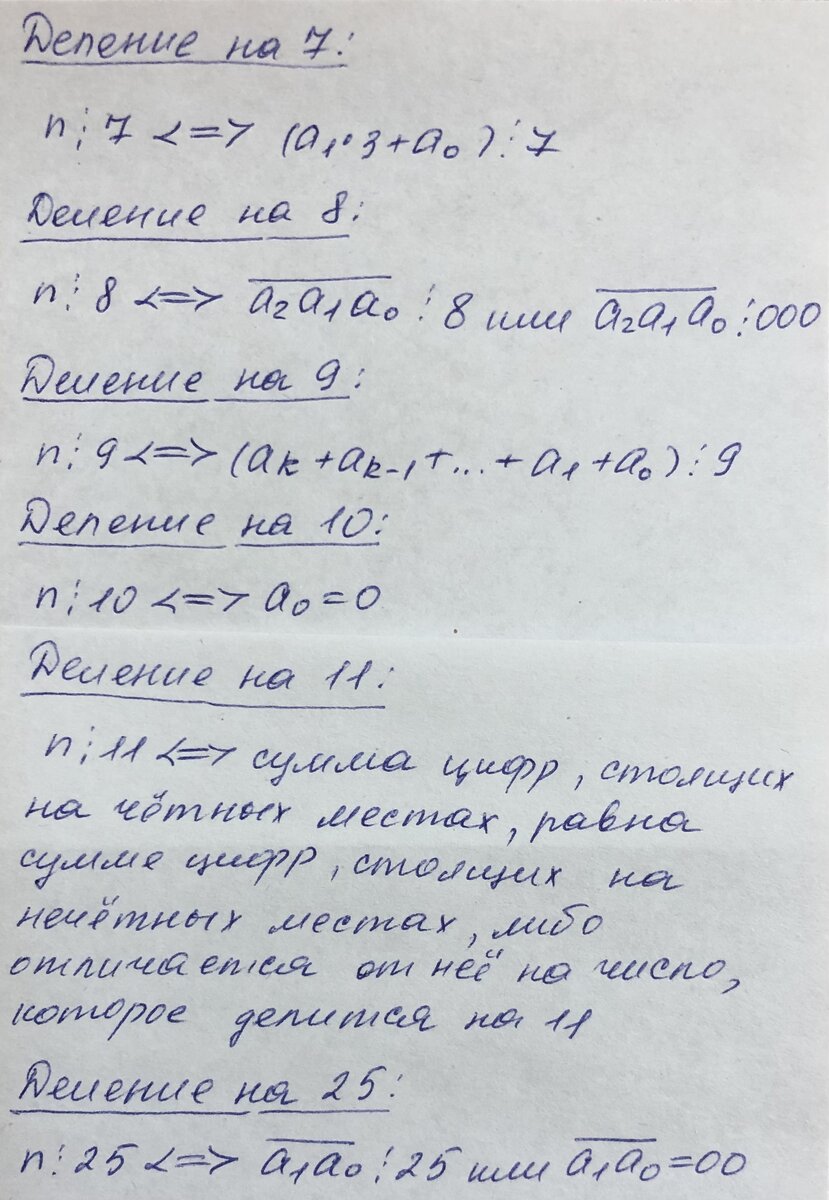 Деление на 7:
n⋮7 <=> (a₁·3+a₀)⋮7
Деление на 8:
n⋮8 <=> a̅₂a̅₁a̅₀⋮8 или a̅₂a̅₁a̅₀⋮000
Деление на 9:
n⋮9 <=> (aₖ+aₖ₋₁+...+a₁+a₀)⋮9
Деление на 10:
n⋮10 <=> a₀=0
Деление на 11:
n⋮11 <=> сумма цифр, стоящих
на чётных местах, равна
сумме цифр, стоящих на
нечётных местах, либо
отличается от неё на число,
которое делится на 11
Деление на 25:
n⋮25 <=> a̅₁a̅₀⋮25 или a̅₁a̅₀=00